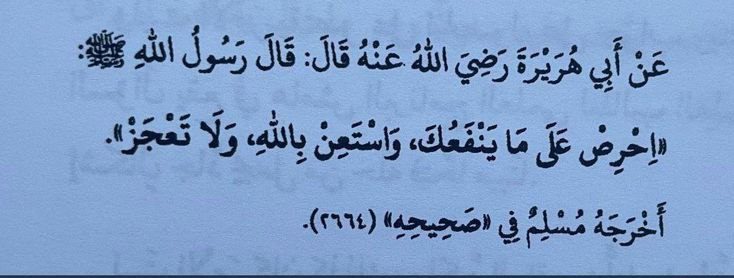 عَنْ أَبِي هُرَيْرَةَ رَضِيَ اللهُ عَنْهُ قَالَ: قَالَ رَسُولُ اللهِ ﷺ:
«اِحْرِصْ عَلَى مَا يَنْفَعُكَ، وَاسْتَعِنْ بِاللهِ، وَلَا تَعْجَزْ».
أَخْرَجَهُ مُسْلِمٌ فِي «صَحِيحِهِ» (٢٦٦٤).